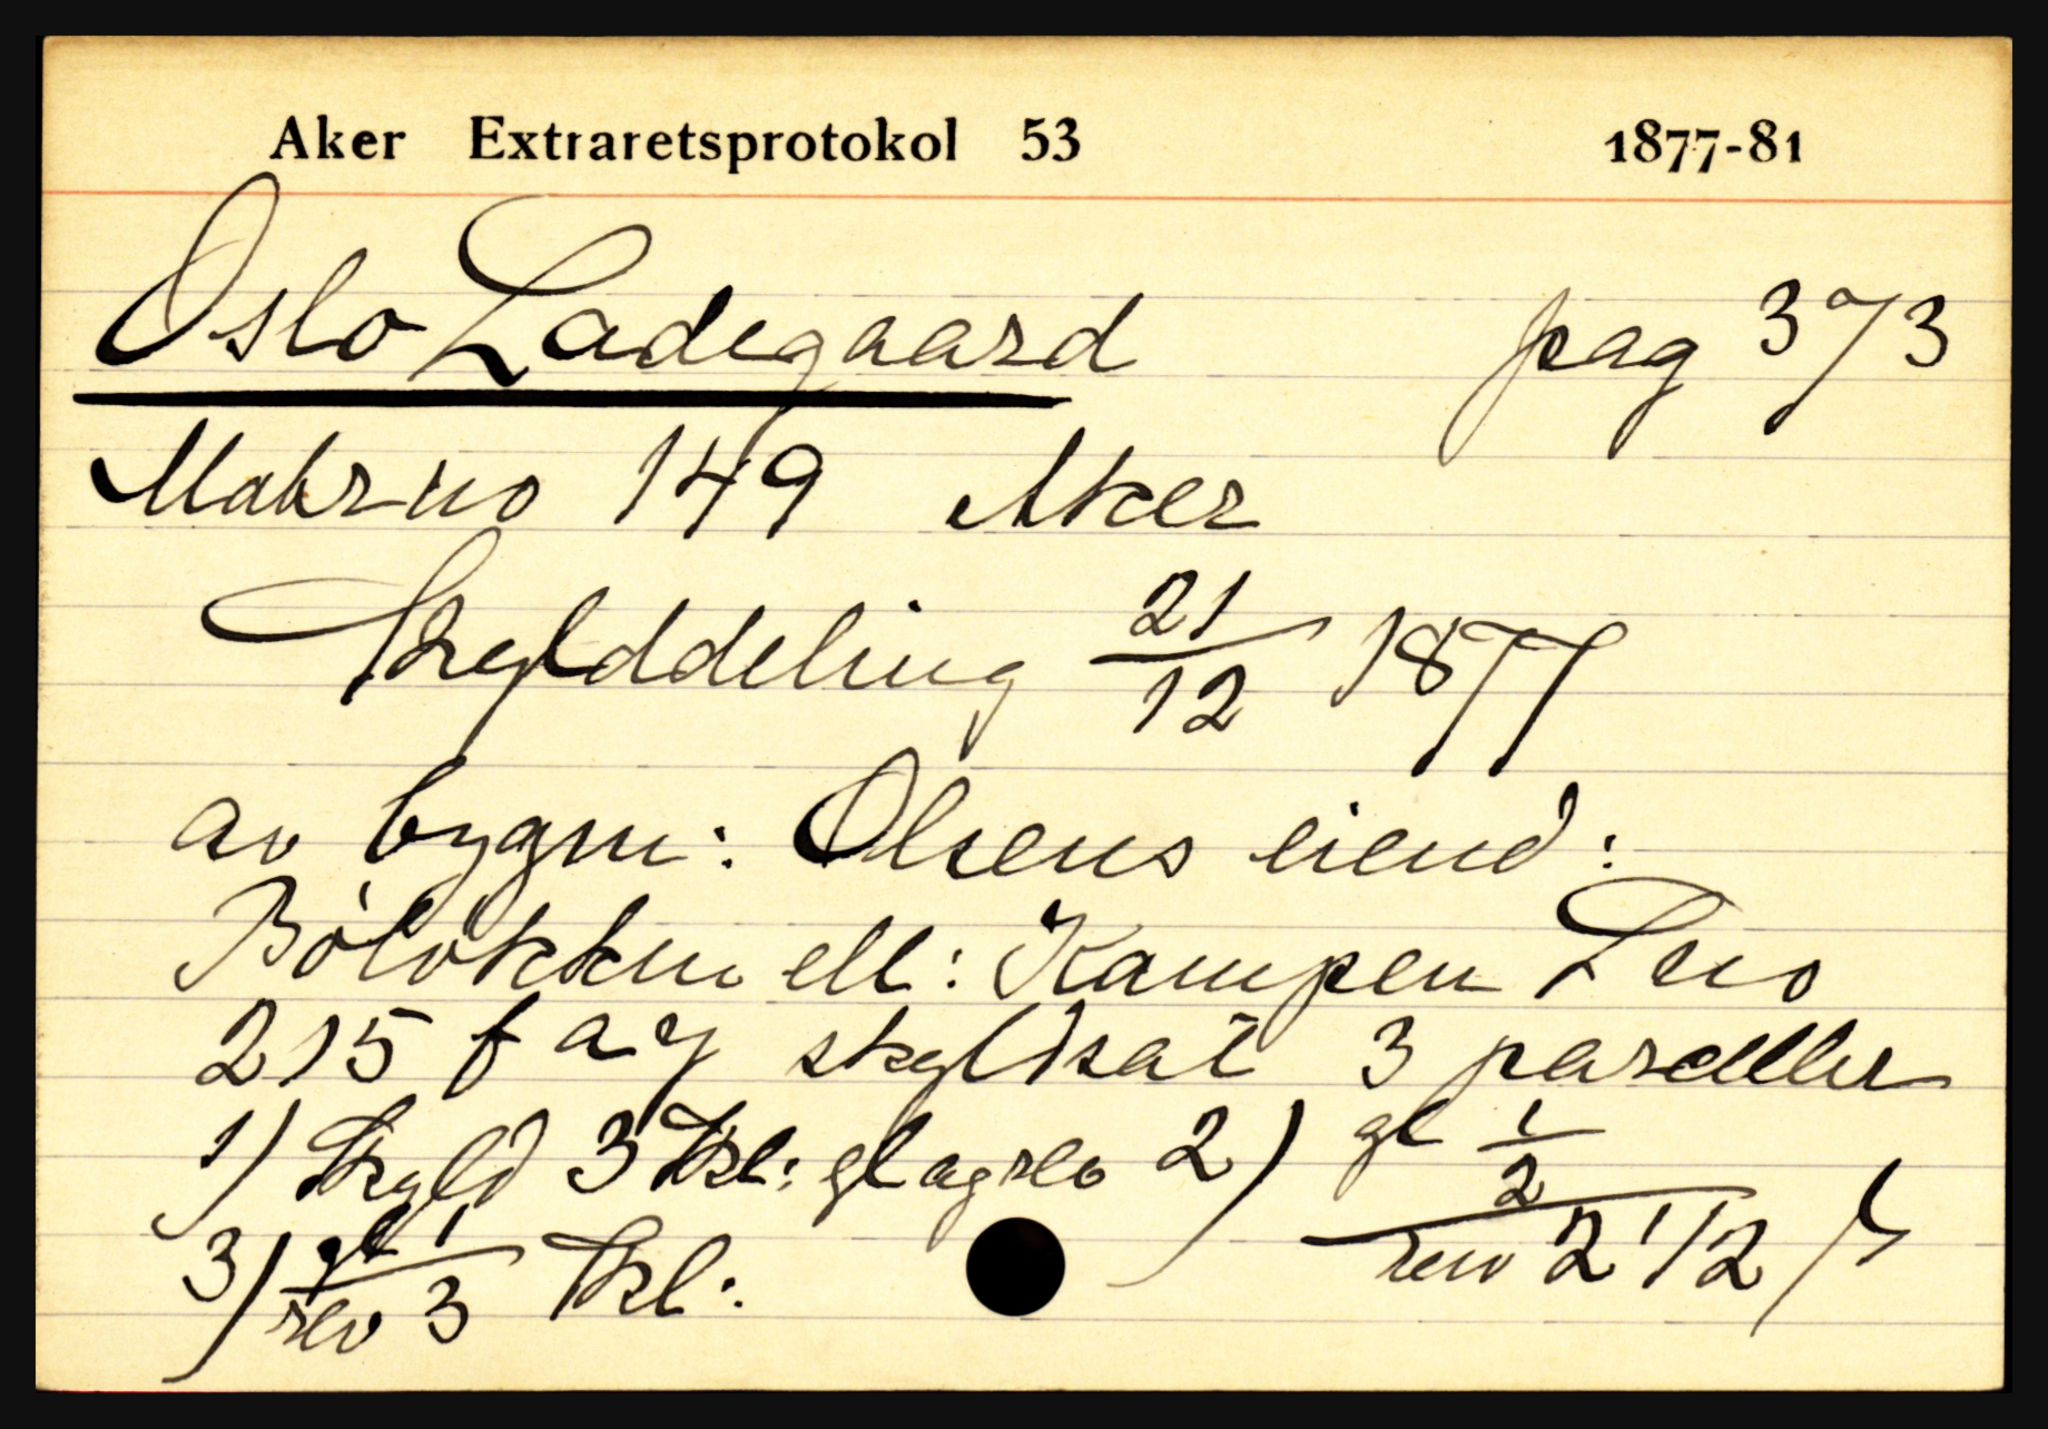 Aker Extraretsprotokol 53 1877-81
Oslo Ladegaard pag 373
Matrno 149 Aker
Skylddeling 21/12 1877
av bygm: Olsens eiend:
Bölökken ell: Kampen Lno
215 f a y skyldsat 3 parceller
1) Skyld 3 Skl: gl og rev 2) gl 1/2
rev 2 1/2 s
3) gl 1
rev 3 Skl: